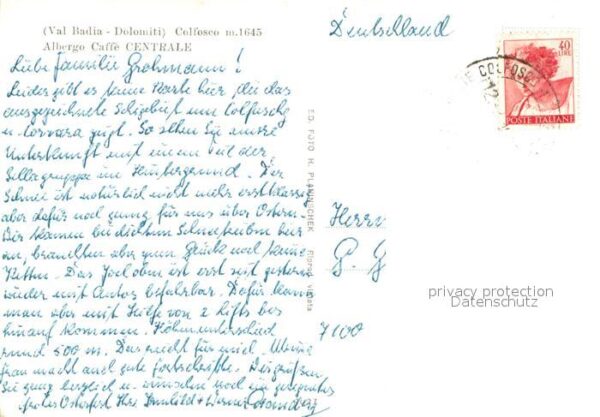 (Val Badia - Dolomiti) Colfosco m.1645
Albergo Caffè CENTRALE
Liebe Familie Grohmann!
Leider gibt es keine Karte hier, die das
ausgezeichnete Schigebiet um Colfuschg
u. Corvara zeigt. So sehen Sie unsere
Unterkunft mit einem Teil der
Sellagruppe im Hintergrund. Der
Schnee ist natürlich nicht mehr erstklassig
aber dafür noch genug für uns über Ostern.
Wir kamen bei dichtem Schneetreiben hier
an, brauchten aber zum Glück noch keine
Ketten. Das Joch oben ist erst seit gestern
wieder mit Autos befahrbar. Dafür kann
man aber mit Hilfe von 2 Lifts bis
hinauf kommen. Höhenunterschied
rund 500 m. Das reicht für mich. Meine
Frau macht auch gute Fortschritte. Wir grüßen
Sie ganz herzlich u. wünschen noch ein gesegnetes
frohes Osterfest Ihre Irmhild + Werner
ED. FOTO H. PLANINSCHEK
Riprod. vietata
Deutschland
COLFOSCO
12
40
LIRE
POSTE ITALIANE
Herrn
P. G
privacy protection
Datenschutz
7100